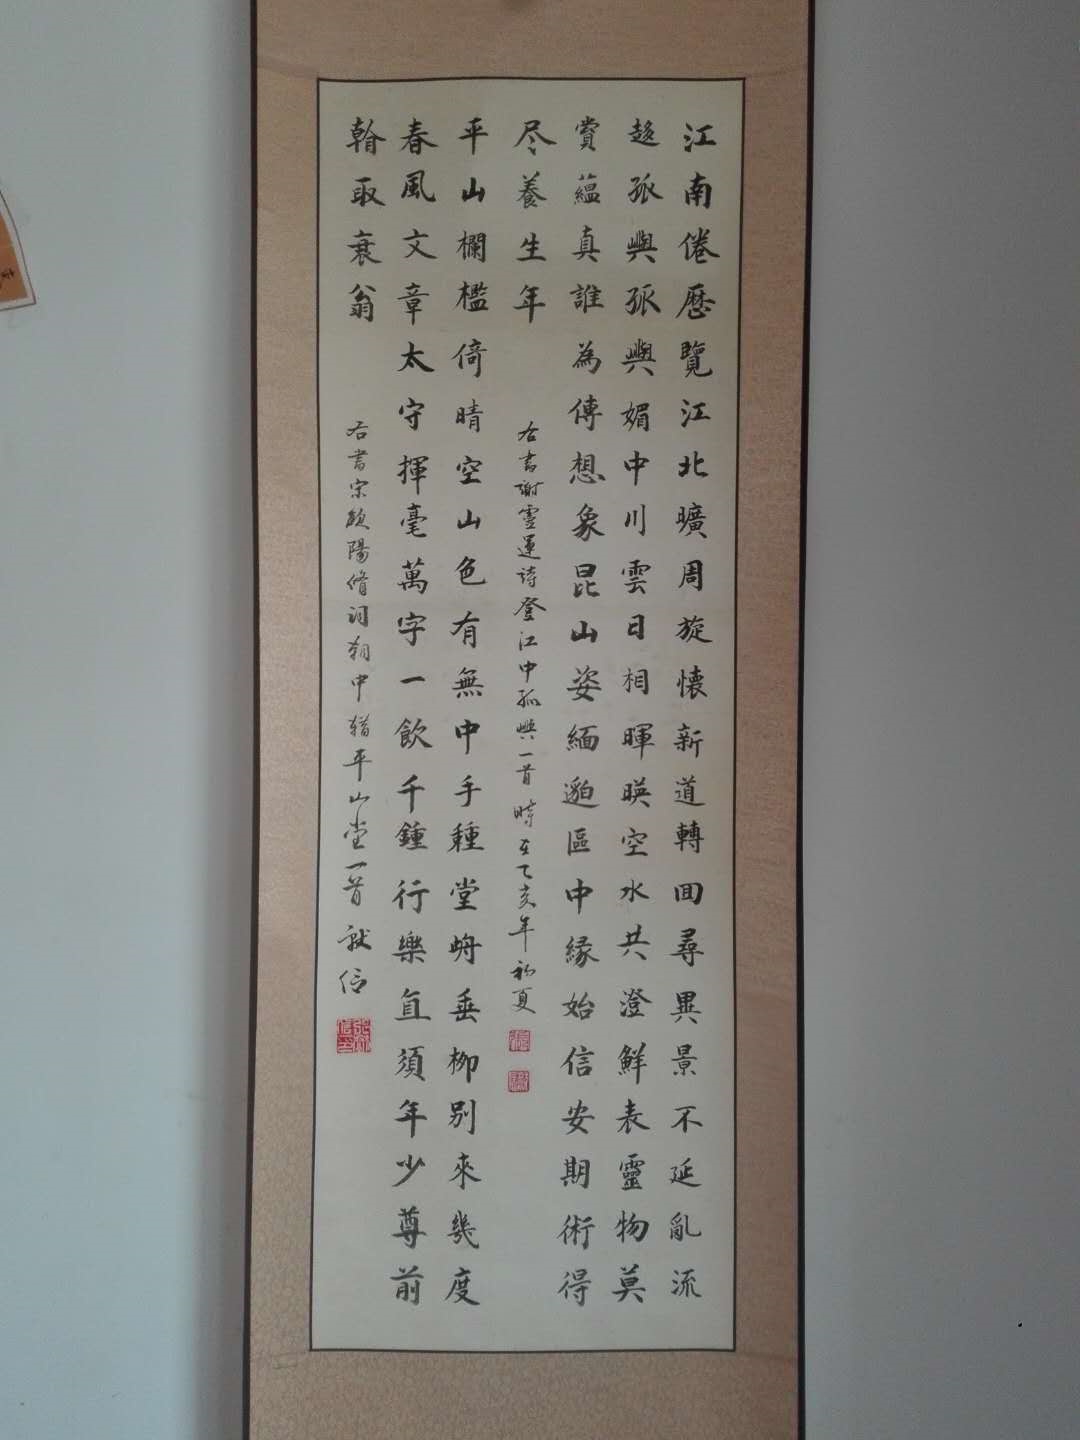 江南倦歷覽江北曠周旋懷新道轉回尋異景不延亂流
趍孤嶼孤嶼媚中川雲日相暉暎空水共澄鮮表靈物莫
賞蘊真誰為傳想象昆山姿緬邈區中緣始信安期術得
尽養生年
右書謝靈運詩登江中孤嶼一首 時在乙亥年初夏
平山欄檻倚晴空山色有無中手種堂歬垂柳別來幾度
春風文章太守揮毫萬字一飲千鍾行樂直須年少尊前
看取衰翁
右書宋歐陽脩詞朝中措平山堂一首